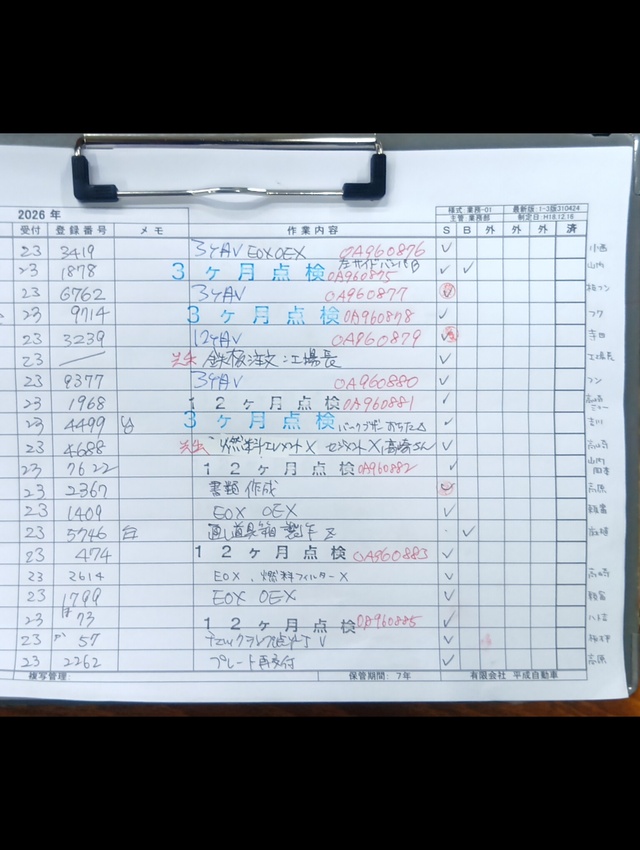 様式 業務-01 最新版:1-3版310424
2026 年 主管 業務部 制定日:H18.12.16
受付 登録番号 メモ 作業内容 S B 外 外 外 済
23 3419 3ケ月V EOX OEX OA960876 小西
23 1878 3ヶ月点検 OA960875 左サイドバンパB 山内
23 6762 3ケ月V OA960877
23 9714 3ヶ月点検 OA960878 フク
23 3239 12ケ月V OA960879 寺田
23 鉄板注文:工場長 工場長
23 9377 3ケ月V OA960880 フン
23 1968 12ヶ月点検 OA960881 高崎
23 4499 3ヶ月点検 吉川
23 4688 燃料エレメントX セジメントX 高崎さん 高崎
23 7622 12ヶ月点検 OA960882 山内
23 2367 書類作成 高原
23 1409 EOX OEX
23 5746 道具箱製作
23 474 12ヶ月点検 OA960883
23 2614 EOX、燃料フィルターX 高崎
23 1799 EOX OEX
23 73 12ヶ月点検 OA960885
23 57 V
23 2262 プレート再交付 高原
複写管理 保管期間: 7年 有限会社 平成自動車